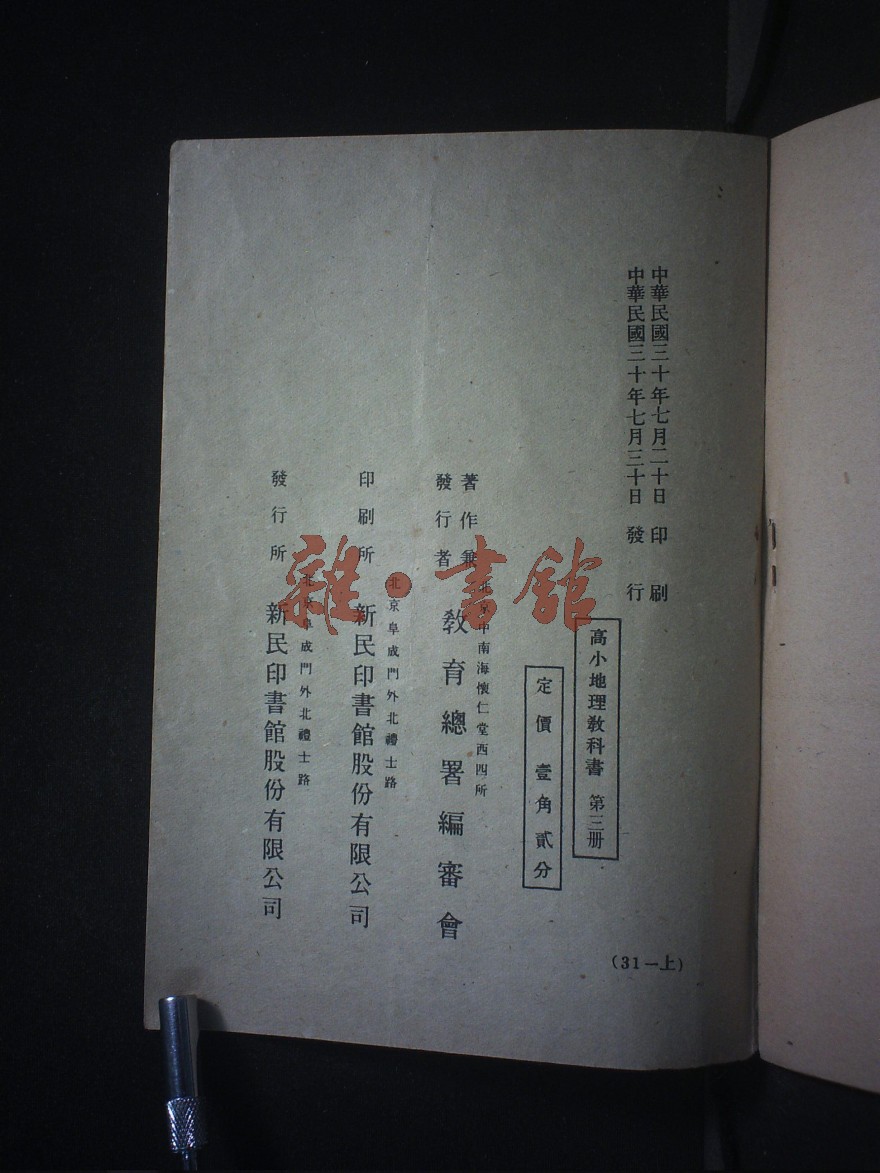 中華民國三十年七月二十日印刷
中華民國三十年七月三十日發行
高小地理教科書 第三册
定價壹角貳分
北京中南海懷仁堂西四所
著作兼
發行者 教育總署編審會
北京阜成門外北禮士路
印刷所 新民印書館股份有限公司
北京阜成門外北禮士路
發行所 新民印書館股份有限公司
(31—上)
雜·書館